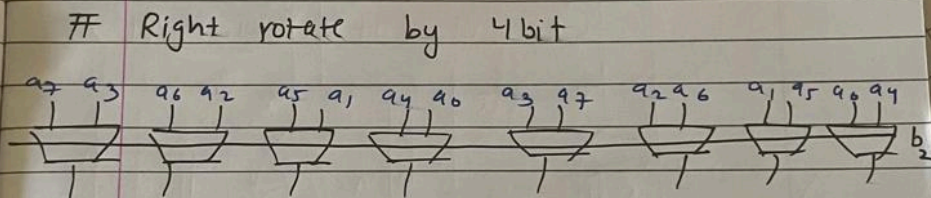 # Right rotate by 4 bit
a7 a3 a6 a2 a5 a1 a4 a0 a3 a7 a2 a6 a1 a5 a0 a4
b2